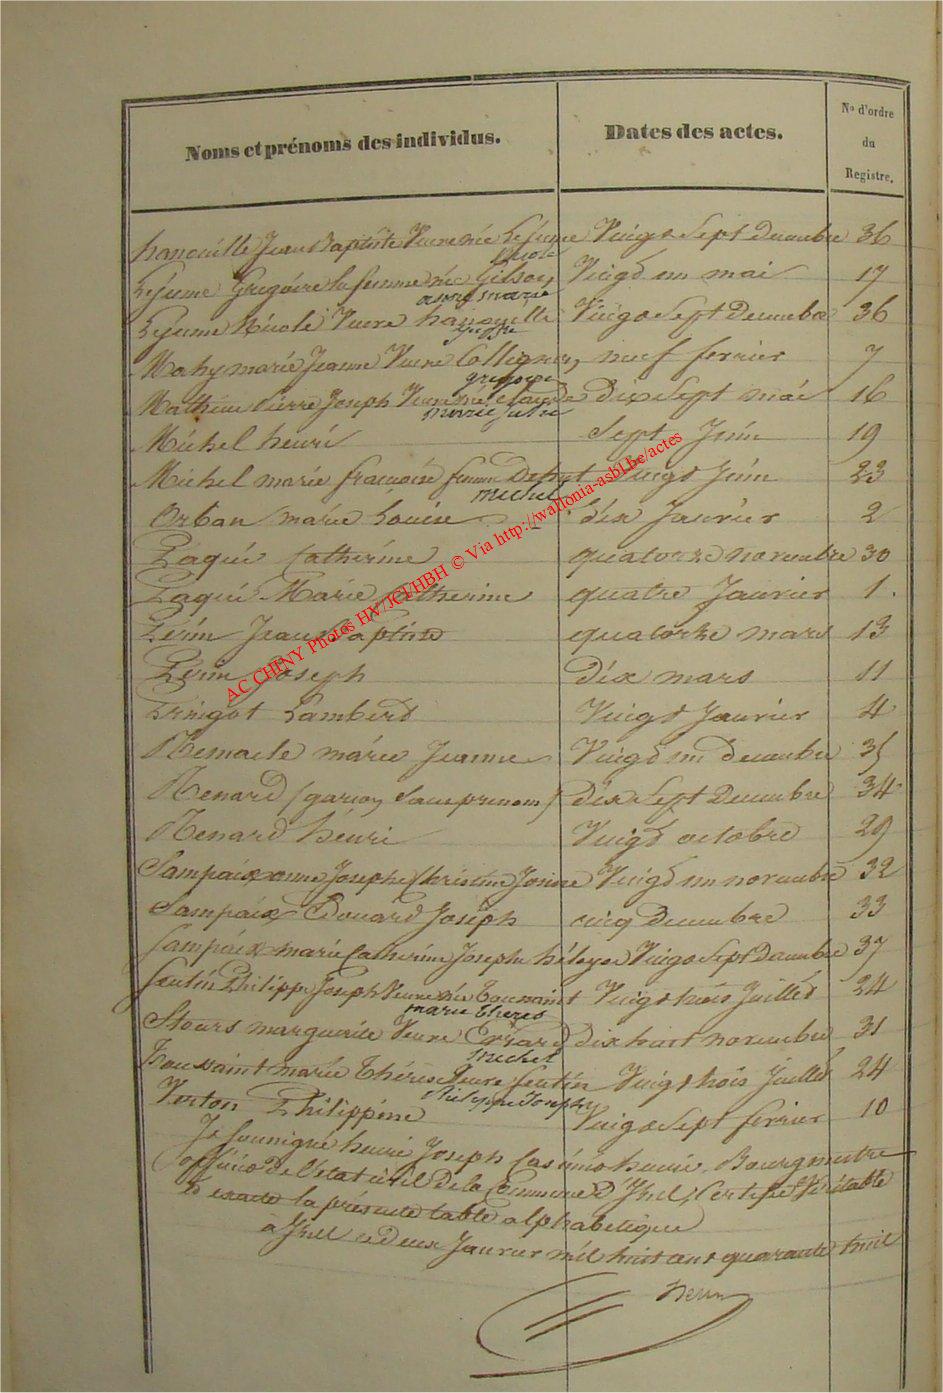 Noms et prénoms des individus. Dates des actes. No d'ordre du Registre.
hanouille Jean Baptiste Veuve née Lejeune Vingt Sept Decembre 36
Nicole
Lejeune Grégoire la femme née Gilson, Vingt un mai 17
anne marie
Lejeune Nicole Veuve hanouille Vingt Sept Decembre 36
Mahy marie Jeanne Veuve Collignon, neuf fevrier 7
gregoire
Mathieu Pierre Joseph Veuve née Claude dix Sept mai 16
marie
Michel henri Sept Juin 19
Michel marie françoise femme Vingt Juin 23
michel
Orban marie Louise dix Janvier 2
Paqui Catherine quatorze novembre 30
Paqui Marie Catherine quatre Janvier 1.
Périn Jean Baptiste quatorze mars 13
Périn Joseph dix mars 11
Pringot Lambert Vingt Janvier 4
Remacle marie Jeanne Vingt un decembre 35
Renard (garçon Sans prenom) dix Sept Decembre 34
Renard henri Vingt octobre 29
Sampaix anne Josephe Christine Vingt un novembre 32
Sampaix Edouard Joseph cinq Decembre 33
Sampaix marie Catherine Josephe Vingt Sept Decembre 37
Philippe Joseph Veuve née Toussaint Vingt trois Juillet 24
marie therese
marguerite Veuve Errard dix huit novembre 31
michel
Toussaint marie Thérèse Veuve Vingt trois Juillet 24
Philippe Joseph
Verton Philippine Vingt Sept fevrier 10
Je Soussigné henri Joseph Casimir Bourgmestre
officier de l'état civil de la Commune d'Izel, Certifie Véritable
et exacte la présente table alphabetique
à Izel ce deux Janvier mil huit cent quarante huit
AC CHINY Photos HV/JCF/HBH © Via http://wallonia-asbl.be/actes